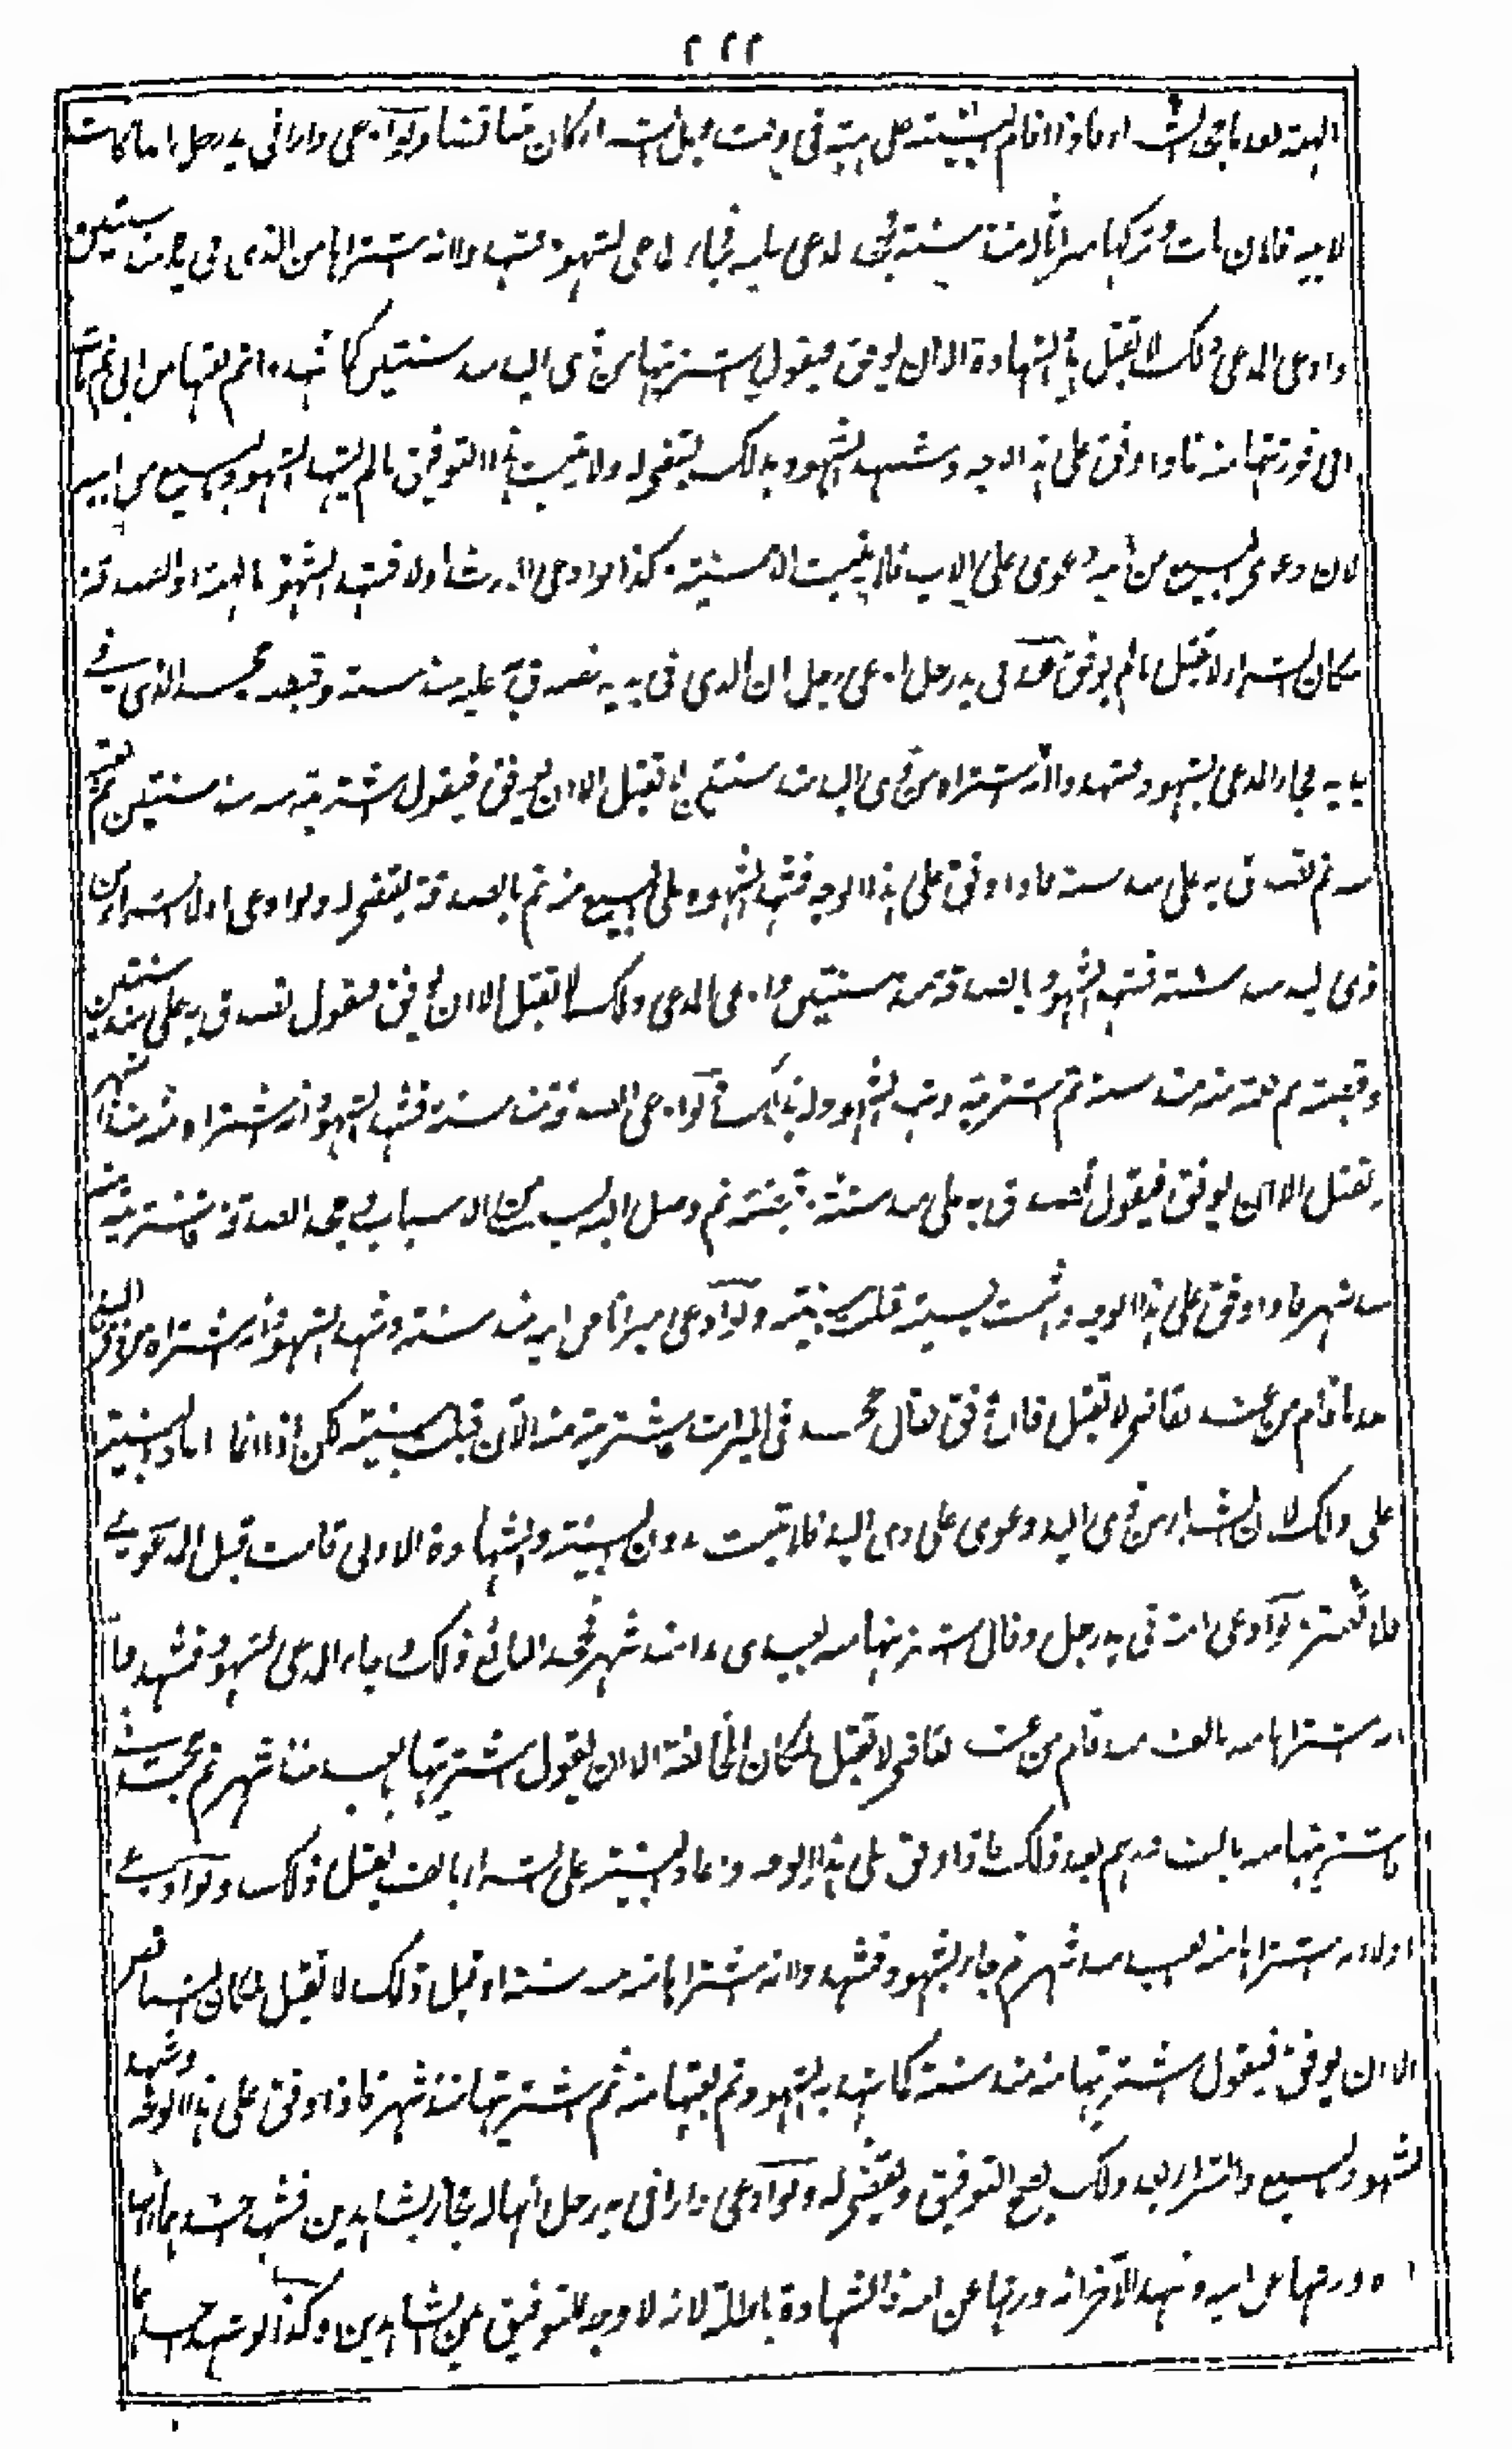 ٢٢٢
الهبة بعد ما جحد الشراء فاذا اقام البينة على هبة في وقت قبل الشراء كان متناقضا ولو ادعى دارا في يد رجل انها كانت
لابيه فلان مات وتركها ميراثا له منذ سنة فجاء المدعى بالشهود فشهدوا انه اشتراها من الذي في يديه منذ سنتين
وادعى المدعى ذلك لا تقبل هذه الشهادة الا ان يوفق فيقول اشتريتها من ذي اليد منذ سنتين كما شهدوا ثم بعتها من ابي ثم مات
ابي فورثتها منه فاذا وفق على هذا الوجه وشهد الشهود بذلك يقضى له ولا يثبت هذا التوفيق ما لم يشهد الشهود بالبيع من ابيه
لان دعوى البيع من ابيه دعوى على الاب فلا يثبت الا ببينة وكذا لو ادعى الارث اولا فشهد الشهود بالهبة او الصدقة
مكان الشراء لا تقبل ما لم يوفق عبد في يد رجل ادعى رجل ان الذي في يديه تصدق به عليه منذ سنة وقبضه وجحد الذي في
يديه فجاء المدعى بشهود فشهدوا انه اشتراه من ذي اليد منذ سنتين لا تقبل الا ان يوفق فيقول اشتريته منه منذ سنتين ثم بعته
منه ثم تصدق به علي منذ سنة فاذا وفق على هذا الوجه فشهد الشهود على البيع منه ثم بالصدقة يقضى له ولو ادعى اولا الشراء من
ذي اليد منذ سنة فشهد الشهود بالصدقة منذ سنتين وادعى المدعى ذلك لا تقبل الا ان يوفق فيقول تصدق به علي منذ سنتين
وقبضته ثم بعته منه منذ سنة ثم اشتريته وشهد الشهود له بذلك ولو ادعى الصدقة منذ سنة فشهد الشهود انه اشتراه منه منذ شهر
لا تقبل الا ان يوفق فيقول تصدق به علي منذ سنة وقبضته ثم وصل اليه بسبب من الاسباب وجحد الصدقة فاشتريته منه
منذ شهر فاذا وفق على هذا الوجه واقام البينة قبلت بينته ولو ادعى ميراثا من ابيه منذ سنة وشهد الشهود انه اشتراه من ذي اليد
بعد ما قام من عند القاضي لا تقبل فان وفق فقال جحدني الميراث فاشتريته منه الآن قبلت بينته لكن اذا اعاد البينة
على ذلك لان الشراء من ذي اليد دعوى على ذي اليد فلا يثبت بدون البينة والشهادة الاولى قامت قبل الدعوى
فلا تعتبر ولو ادعى امة في يد رجل وقال اشتريتها منه بعبدي هذا منذ شهر فجحد البائع ذلك وجاء المدعى بشهود فشهدوا
انه اشتراها منه بالف بعد ما قام من عند القاضي لا تقبل لمكان المخالفة الا ان يقول اشتريتها بالعبد منذ شهر ثم جحد
فاشتريتها منه بالف درهم بعد ذلك فاذا وفق على هذا الوجه واعاد البينة على الشراء بالف يقبل ذلك ولو ادعى
اولا انه اشتراها منه بعبد منذ شهر ثم جاء بشهود فشهدوا انه اشتراها منه منذ سنة او قبل ذلك لا تقبل لمكان التناقض
الا ان يوفق فيقول اشتريتها منه منذ سنة كما شهد به الشهود ثم بعتها منه ثم اشتريتها منذ شهر فاذا وفق على هذا الوجه وشهد
الشهود بالبيع والشراء بعد ذلك يصح التوفيق ويقضى له ولو ادعى دارا في يد رجل انها له فجاء بشاهدين فشهد احدهما انها
له ورثها عن ابيه وشهد الآخر انه ورثها عن امه فالشهادة باطلة لانه لا وجه للتوفيق بين الشاهدين وكذا لو شهد احدهما